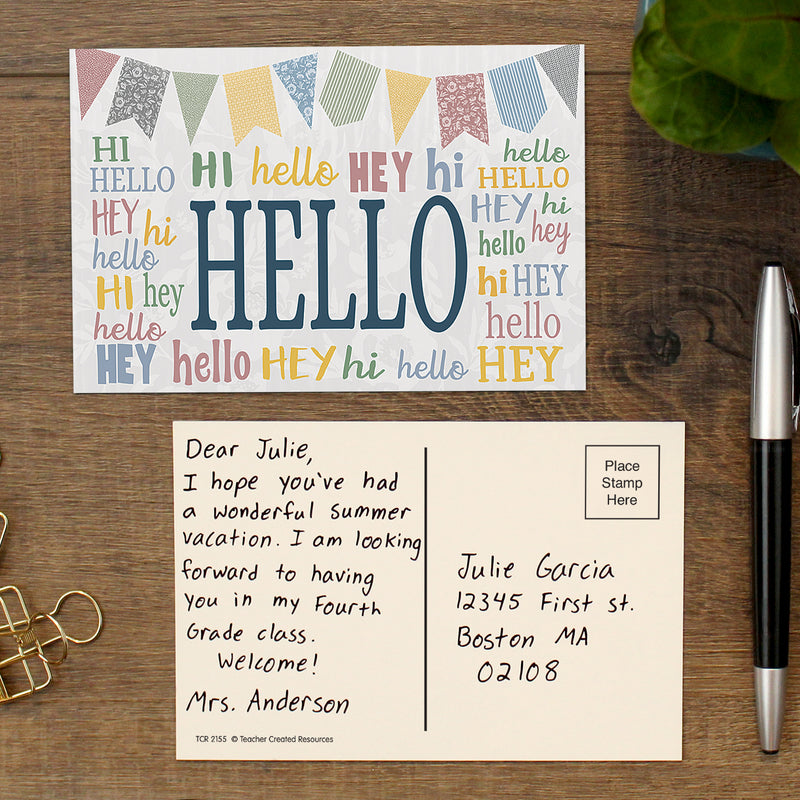 HI
HELLO
HI hello HEY hi
hello
HELLO
HEY hi
hello
HI hey
hello
HELLO
HEY hi
hello hey
hi HEY
hello
HEY hello HEY hi hello HEY
Dear Julie,
I hope you've had
a wonderful summer
vacation. I am looking
forward to having
you in my Fourth
Grade class.
Welcome!
Mrs. Anderson
TCR 2155 © Teacher Created Resources
Place
Stamp
Here
Julie Garcia
12345 First st.
Boston MA
02108